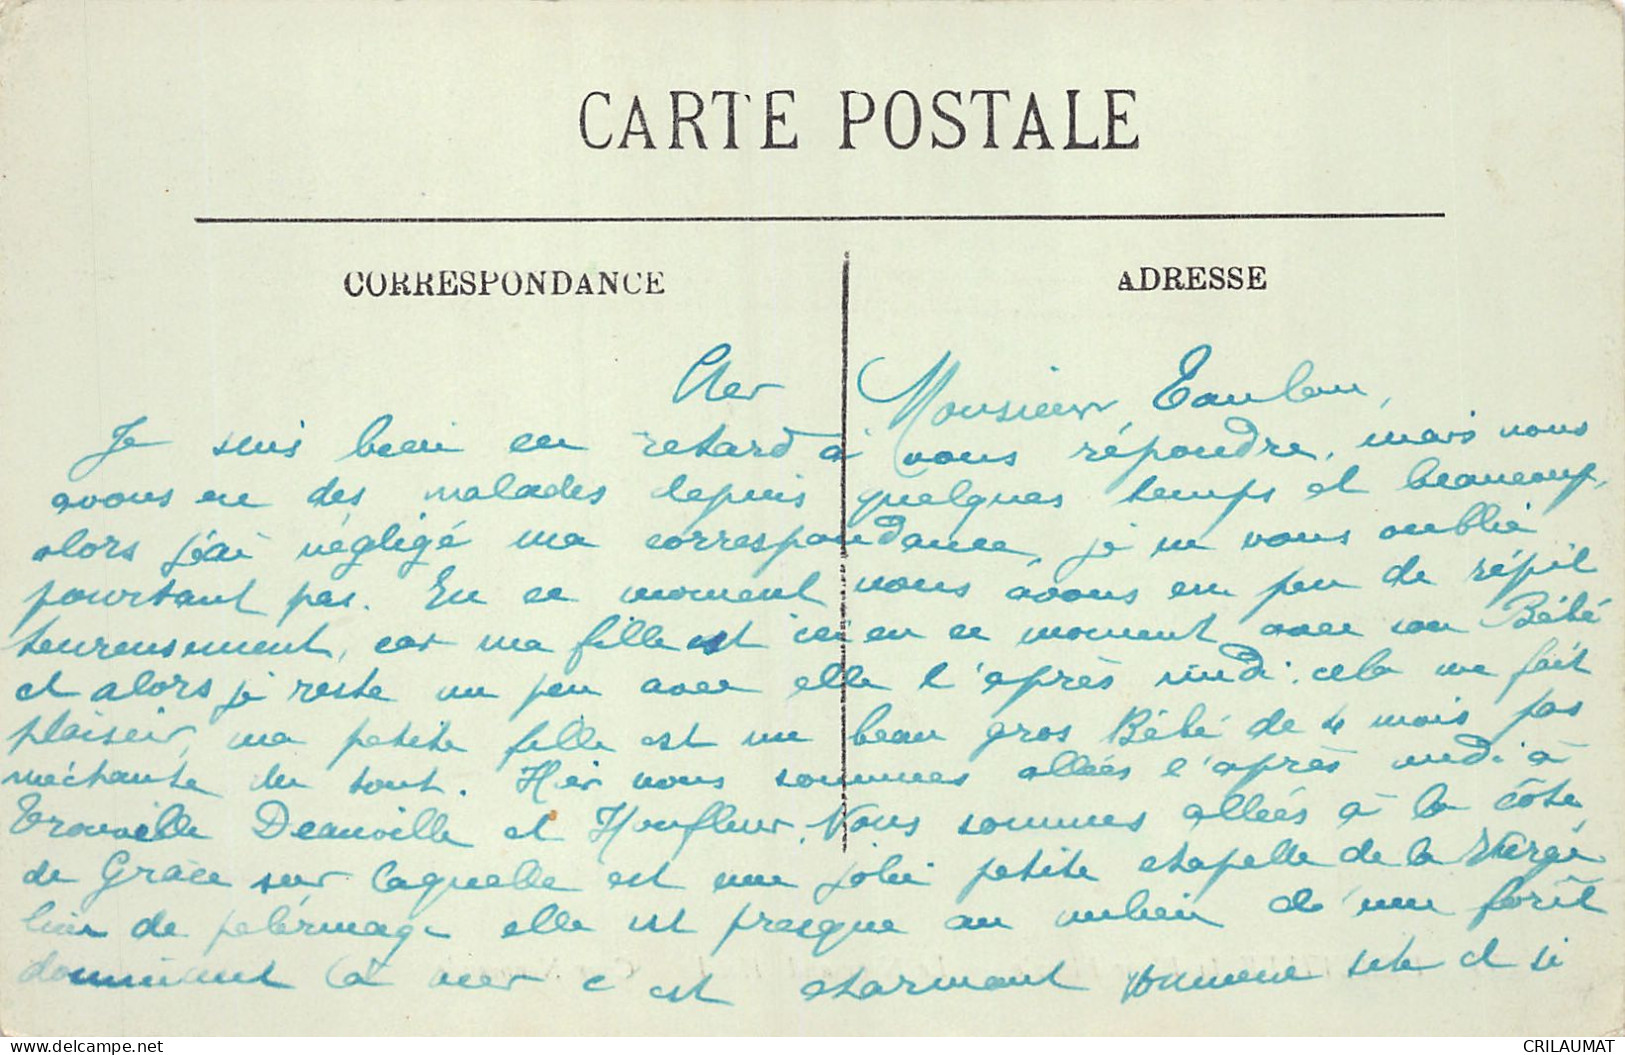 CARTE POSTALE
CORRESPONDANCE
ADRESSE
Cher Monsieur
Je suis bien en retard à vous répondre, mais nous
avons eu des malades depuis quelques temps et beaucoup,
alors j'ai négligé ma correspondance, je ne vous oublie
pourtant pas. En ce moment nous avons un peu de répit
heureusement, car ma fille est ici en ce moment avec son Bébé
et alors je reste un peu avec elle l'après midi. cela me fait
plaisir, ma petite fille est un beau gros Bébé de 4 mois pas
méchante du tout. Hier nous sommes allées l'après midi à
Trouville Deauville et Honfleur. Nous sommes allées à la côte
de Grâce sur laquelle est une jolie petite chapelle de la Vierge
lieu de pelérinage elle est presque au milieu d'une forêt
dominant la mer c'est charmant comme site et si
www.delcampe.net
CRILAUMAT